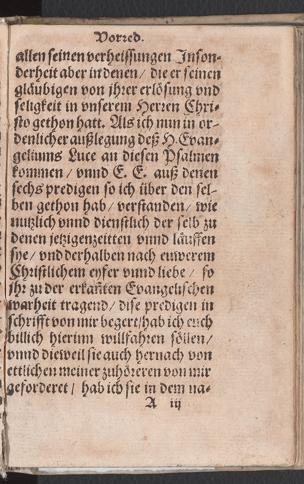 Vorred.
allen seinen verheissungen Inson-
derheit aber in denen / die er seinen
gläubigen von jhrer erlösung vnd
seligkeit in vnserem Herren Chri-
sto gethon hatt. Als ich nun in or-
denlicher außlegung deß H. Evan-
geliums Luce an disen Psalmen
kommen / vnnd E. E. auß denen
sechs predigen so ich über den sel-
ben gethon hab / verstanden / wie
nutzlich vnnd dienstlich der selb zu
denen jetzigen zeitten vnnd läuffen
sye / vnd derhalben nach euwerem
Christlichem eyfer vnnd liebe / so
jhr zu der erkañten Evangelischen
warheit tragend / dise predigen in
schrifft von mir begert / hab ich euch
billich hierinn willfahren söllen /
vnnd dieweil sie auch hernach von
ettlichen meiner zuhöreren von mir
geforderet / hab ich sie in dem na-
A iij